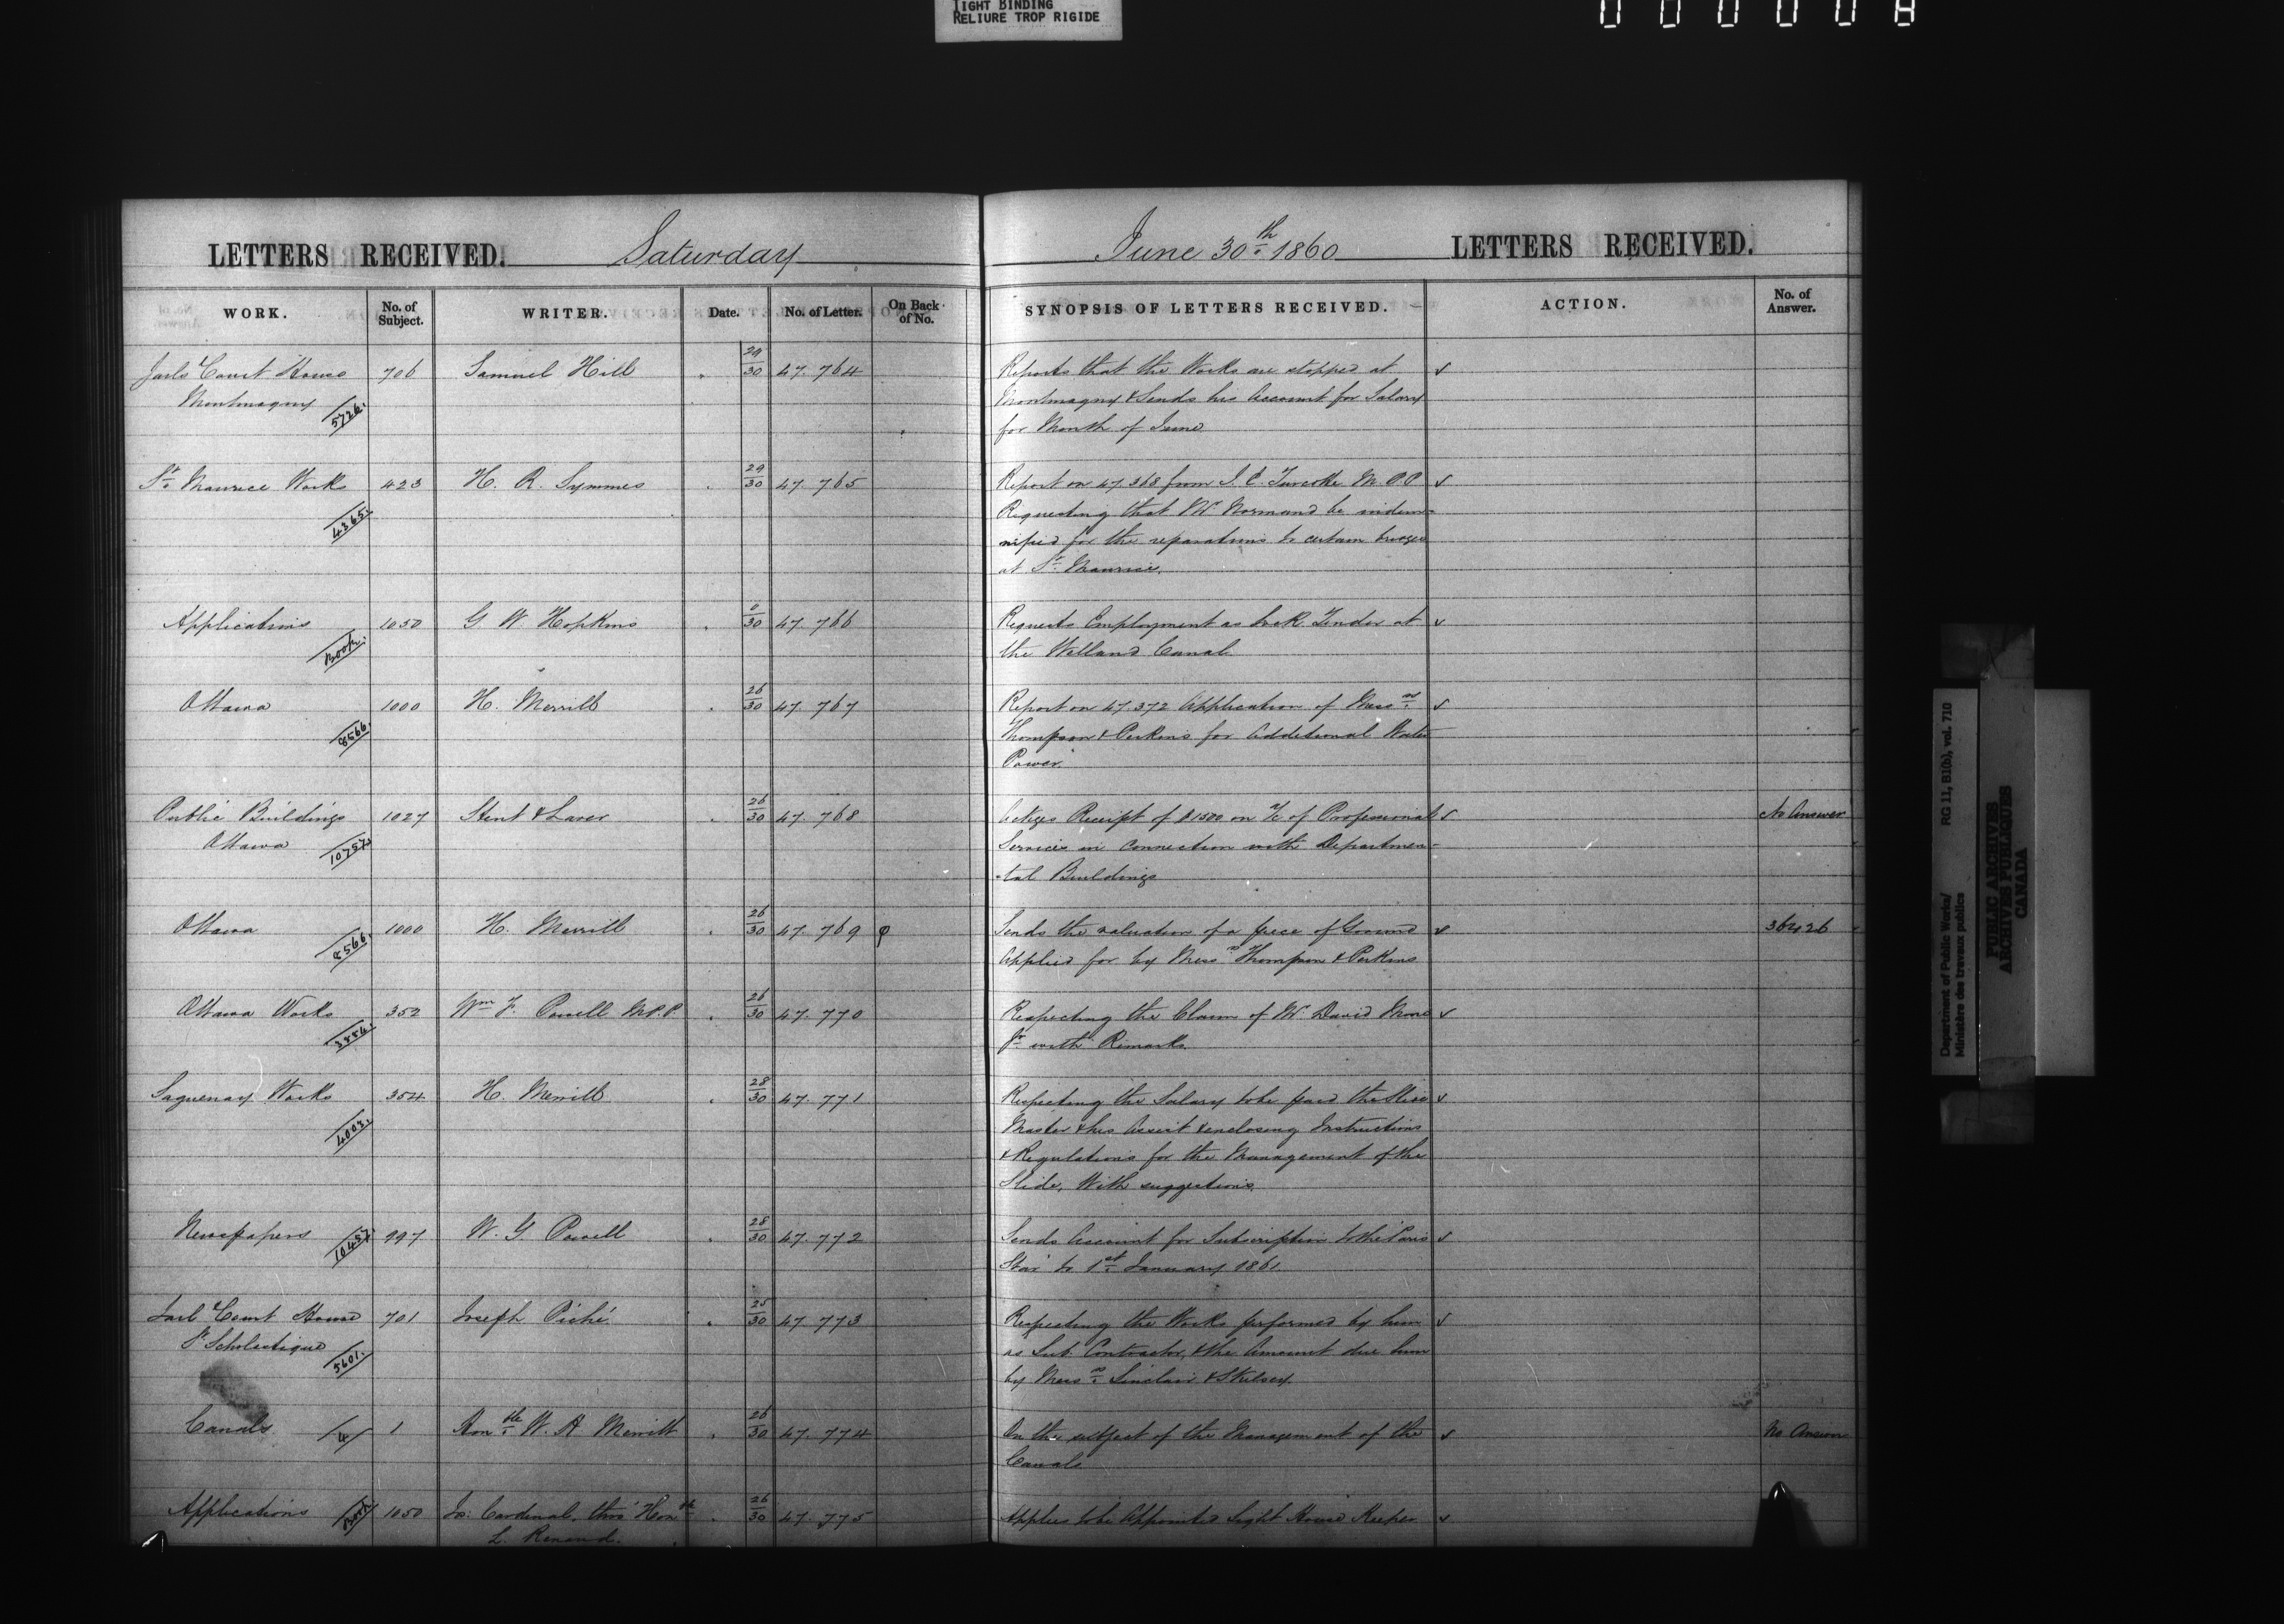 TIGHT BINDING
RELIURE TROP RIGIDE
LETTERS RECEIVED. Saturday June 30th 1860 LETTERS RECEIVED.
WORK. No. of Subject. WRITER. Date. No. of Letter. On Back of No. SYNOPSIS OF LETTERS RECEIVED. ACTION. No. of Answer.
Jail & Court House 706 Samuel Hill 29/30 47.764 Reports that the Works are stopped at
Montmagny 5726. Montmagny & Sends his Account for Salary
for Month of June
St. Maurice Works 423 H. R. Symmes 29/30 47.765 Report on 47.368 from J. E. Turcotte M.P.P.
4365. Requesting that Mr Normand be indem-
nified for the reparations to certain
at St. Maurice.
Applications 1050 G W. Hopkins 0/30 47.766 Requests Employment as Lock Tender at
Book. the Welland Canal
Ottawa 1000 H. Merrill 26/30 47.767 Report on 47.372 Application of Messrs.
8566. Thompson & Perkins for Additional Water
Power.
Public Buildings 1027 Stent & Laver 26/30 47.768 Receipt of $1500 on a/c of Professional No Answer
Ottawa 10757 Services in Connection with Departmen-
-tal Buildings
Ottawa 1000 H. Merrill 26/30 47.769 Sends the valuation of a piece of Ground 36426
8566. Applied for by Messrs Thompson & Perkins
Ottawa Works 352 Wm F. Powell M.P.P. 26/30 47.770 Respecting the Claim of Mr David Moore
3884. Jr with Remarks.
Saguenay Works 354 H. Merrill 28/30 47.771 Respecting the Salary to be paid the Slide
4003. Master & his Assist & enclosing Instructions
& Regulations for the Management of the
Slide, With suggestions.
Newspapers 10457 997 W. G. Powell 28/30 47.772 Sends Account for Subscription to the Paris
Star to 1st January 1861.
Jail & Court House 701 Joseph Piché 25/30 47.773 Respecting the Works performed by him
St Scholastique 5601. as Sub Contractor, & the Amount due him
by Messrs. Sinclair & Skelsey.
Canals 4 1 Honble W. H Merritt 26/30 47.774 On the subject of the Management of the No Answer
Canals
Applications Book 1050 Jos. Cardinal, thro' Honble 26/30 47.775 Applies to be Appointed Light House Keeper
L. Renaud.
Department of Public Works/ RG 11, B1(b), vol. 710
Ministère des travaux publics
PUBLIC ARCHIVES
ARCHIVES PUBLIQUES
CANADA